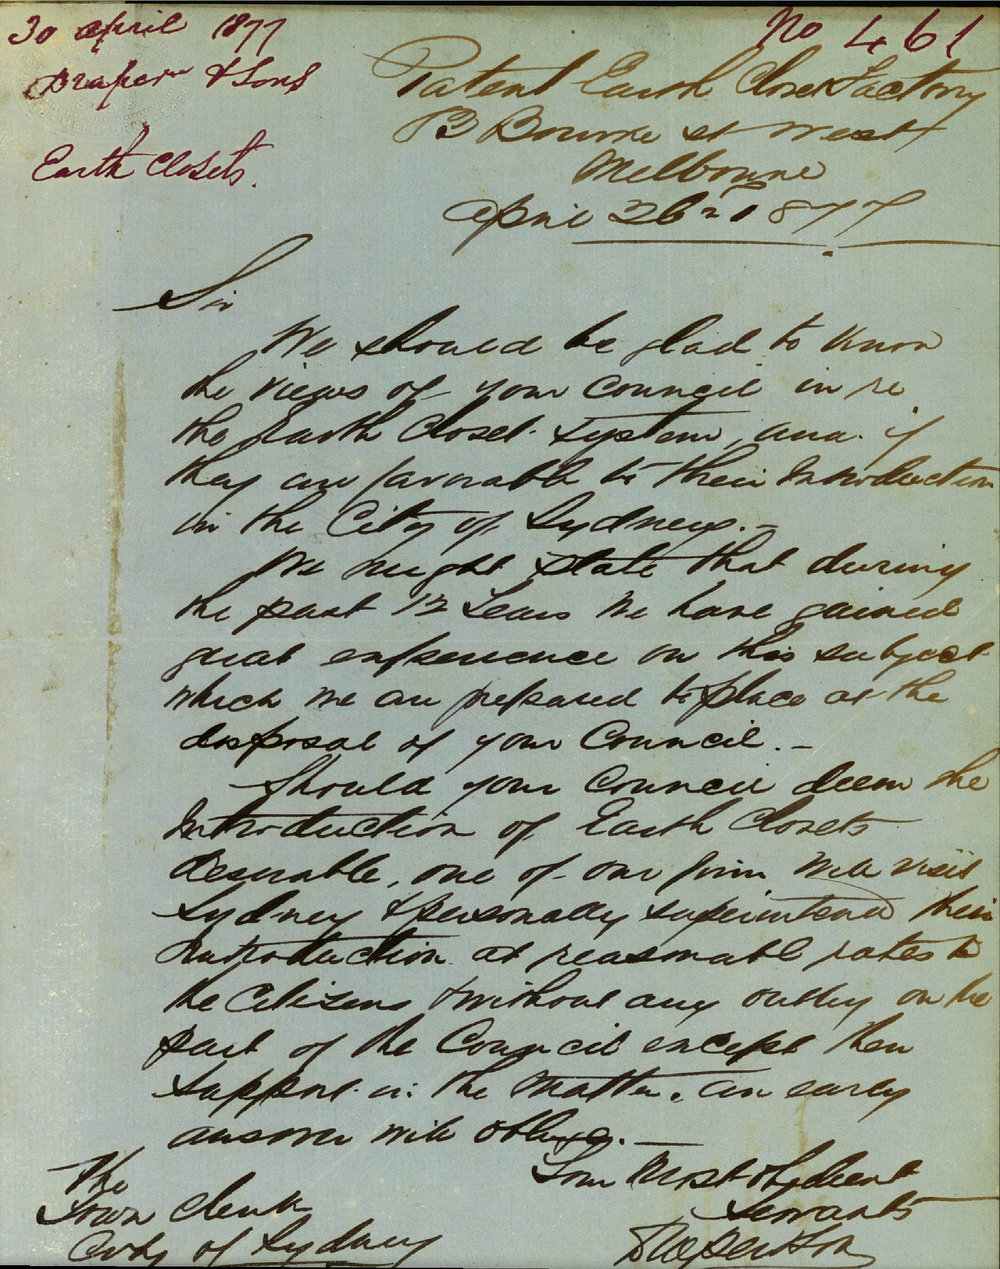 30 April 1877
Draper & Sons
Earth Closets.
No 461
Patent Earth Closet Factory
13 Bourke St West
Melbourne
April 26th 1877
Sir
We should be glad to know
the views of your Council in re
the Earth Closet System, and if
they are favorable to their Introduction
in the City of Sydney. —
We might state that during
the past 12 Years We have gained
great experience on this subject
which we are prepared to place at the
disposal of your Council. —
Should your Council deem the
Introduction of Earth Closets
desirable, one of our firm will visit
Sydney & personally superintend their
Introduction at reasonable rates to
the Citizens & without any outlay on the
part of the Council except their
support in the Matter. An early
answer will oblige. —
Your Most Obedient
Servants
The
Town Clerk
City of Sydney